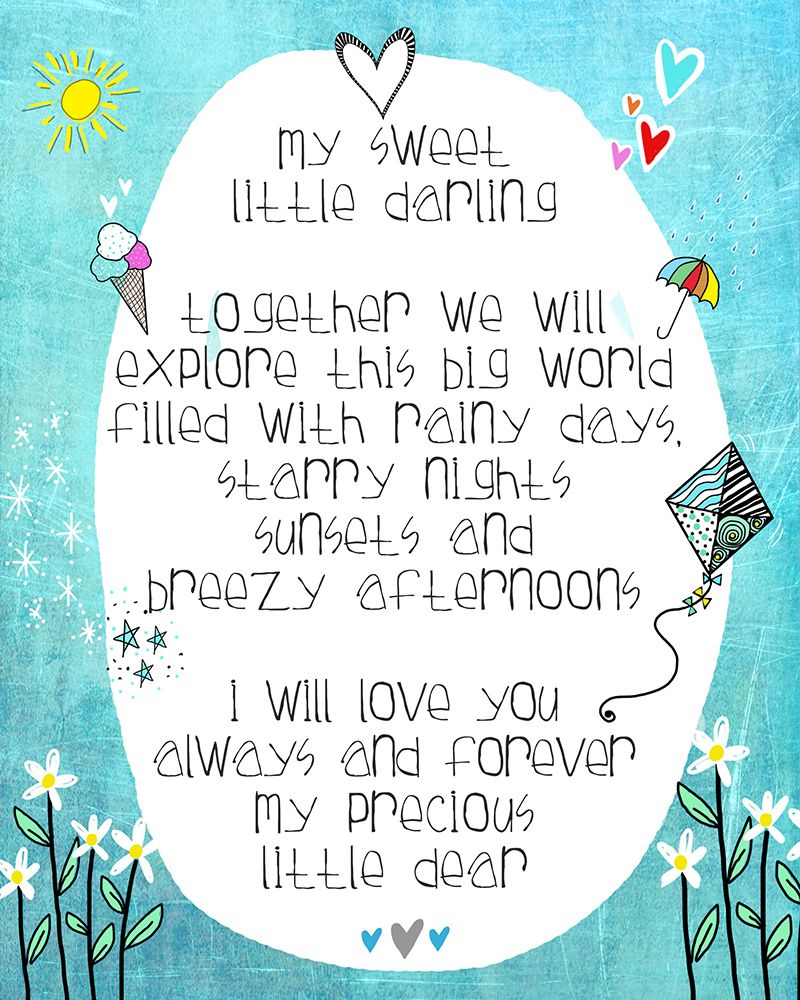 my sweet
little darling
together we will
explore this big world
filled with rainy days,
starry nights
sunsets and
breezy afternoons
i will love you
always and forever
my precious
little dear